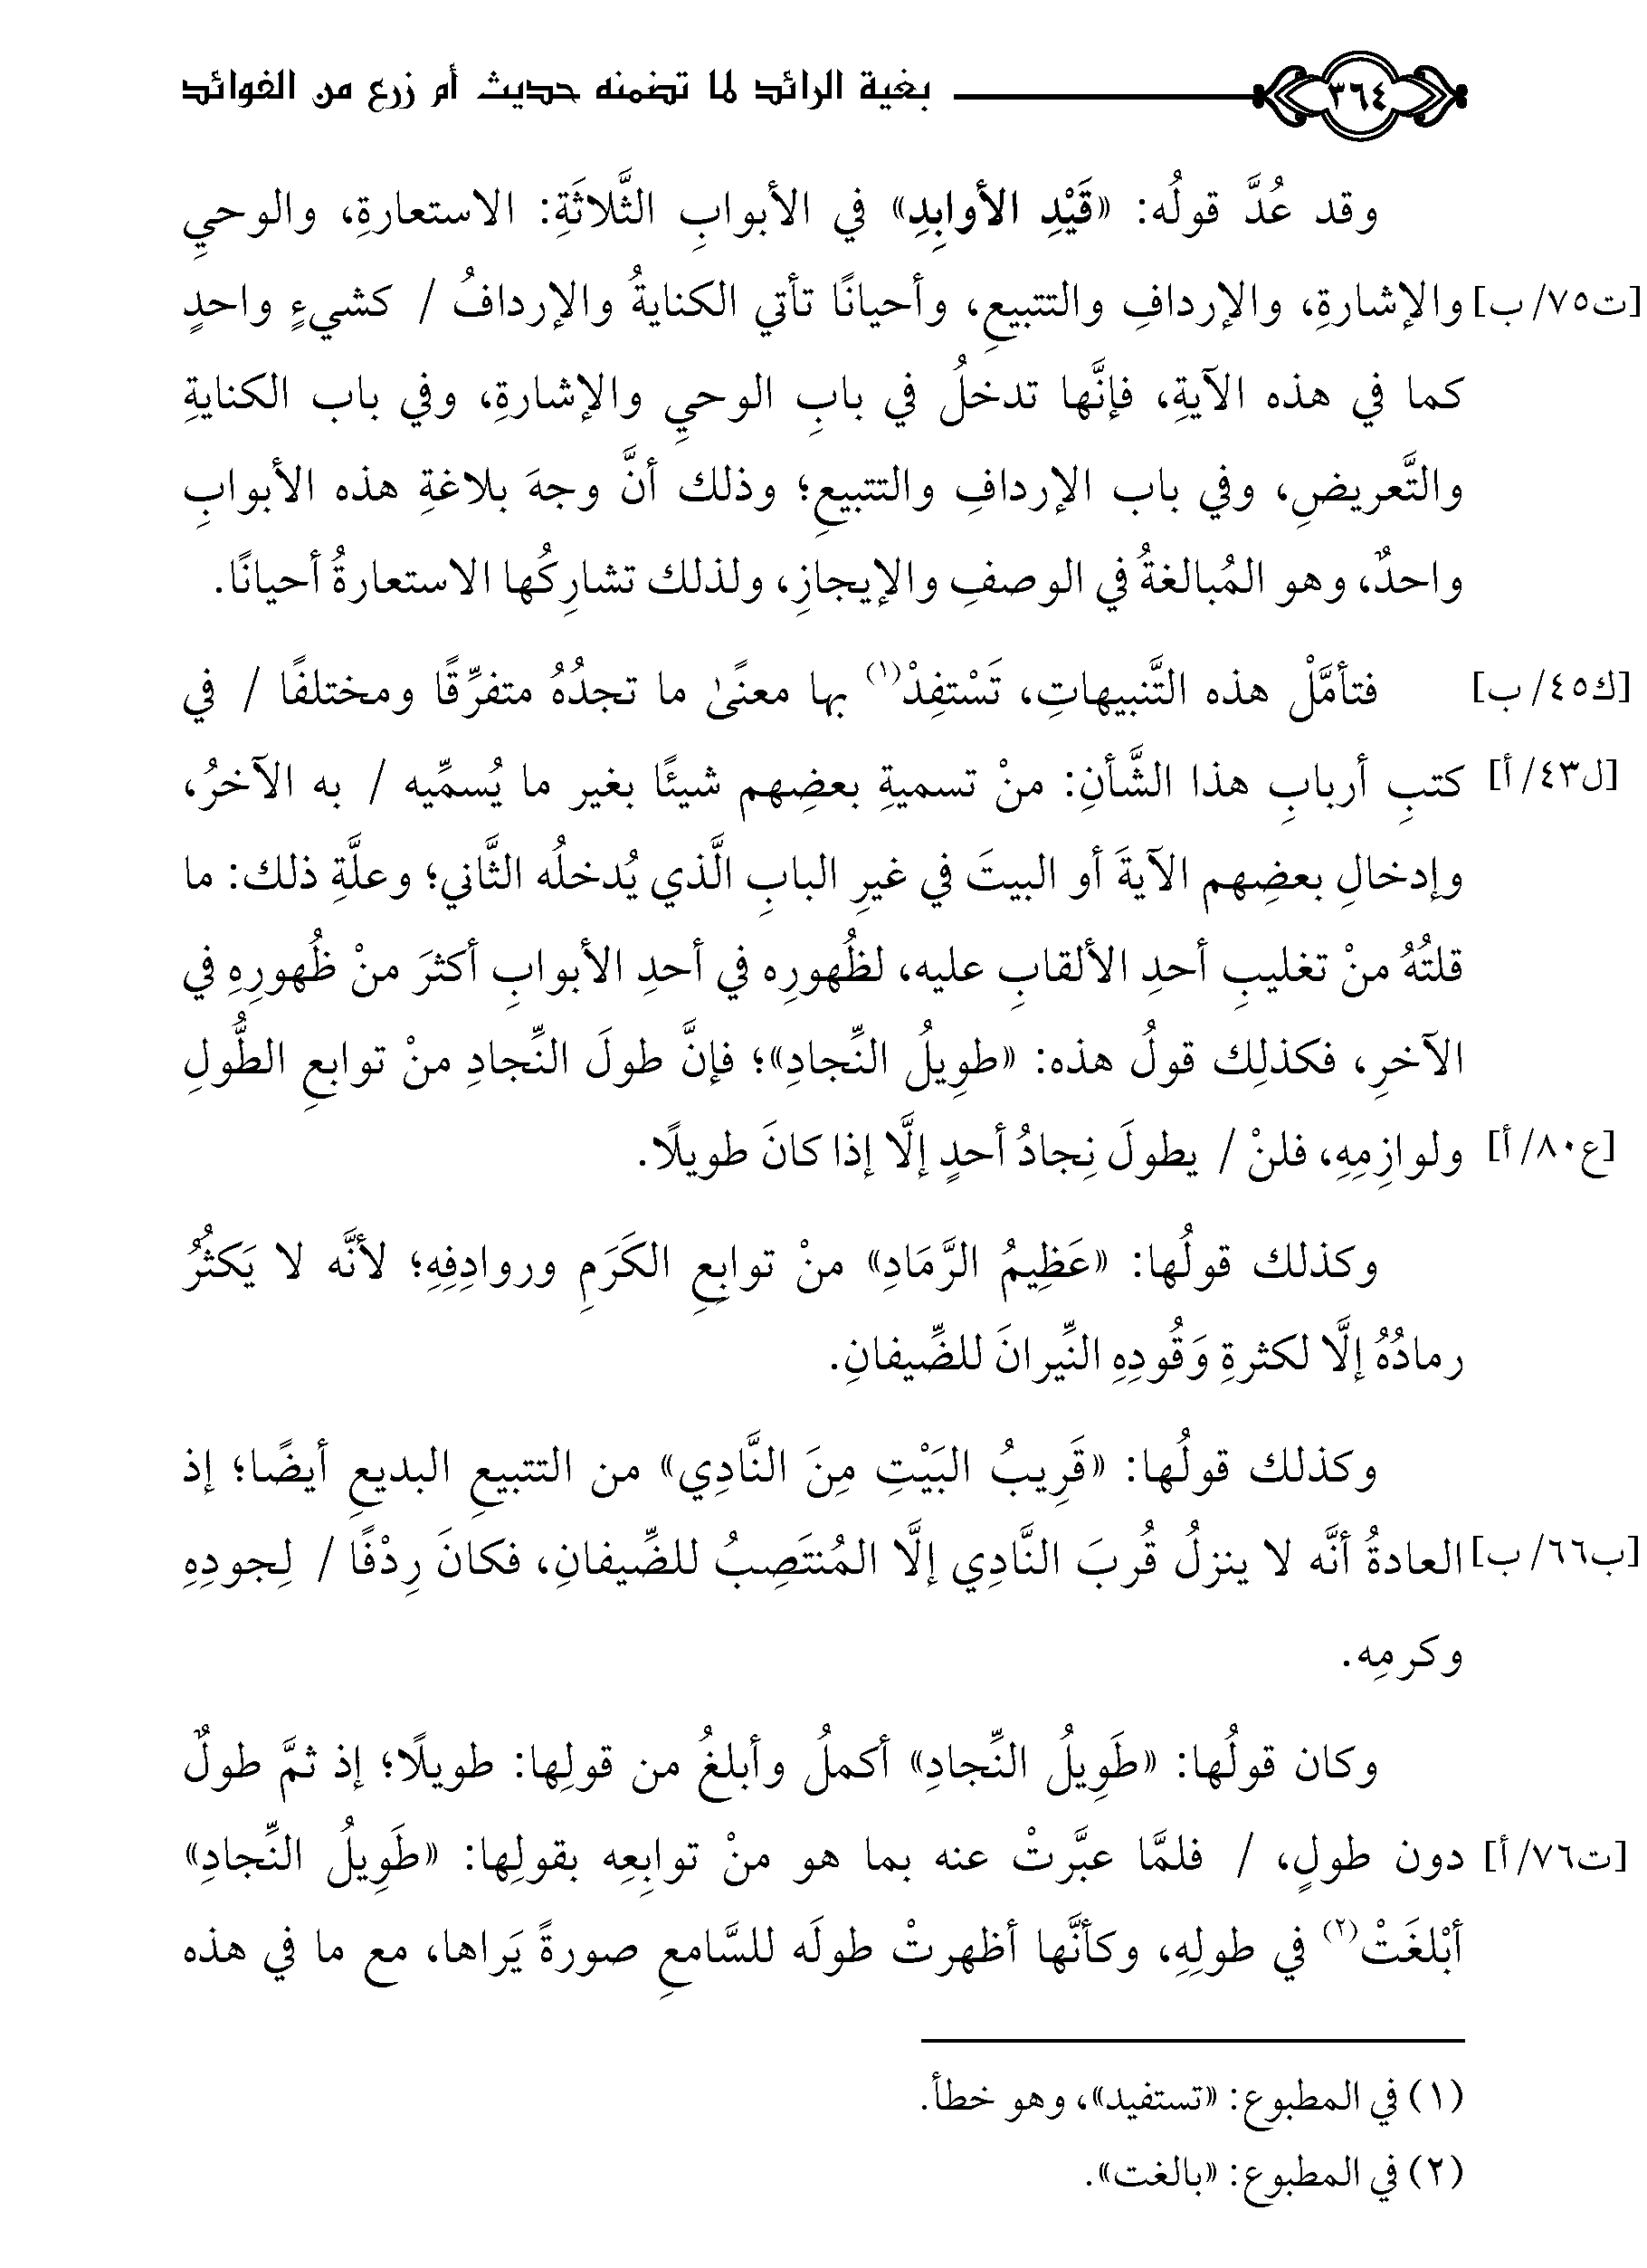 ٣٦٤ بغية الرائد لما تضمنه حديث أم زرع من الفوائد
وقد عُدَّ قولُه: «قَيْدِ الأوابِدِ» في الأبوابِ الثَّلاثَةِ: الاستعارةِ، والوحيِ
[ت٧٥/ ب] والإشارةِ، والإردافِ والتتبيعِ، وأحيانًا تأتي الكنايةُ والإردافُ / كشيءٍ واحدٍ
كما في هذه الآيةِ، فإنَّها تدخلُ في بابِ الوحيِ والإشارةِ، وفي باب الكنايةِ
والتَّعريضِ، وفي باب الإردافِ والتتبيعِ؛ وذلك أنَّ وجهَ بلاغةِ هذه الأبوابِ
واحدٌ، وهو المُبالغةُ في الوصفِ والإيجازِ، ولذلك تشارِكُها الاستعارةُ أحيانًا.
[ك٤٥/ ب] فتأمَّلْ هذه التَّنبيهاتِ، تَسْتفِدْ(١) بها معنًىٰ ما تجدُهُ متفرِّقًا ومختلفًا / في
[ل٤٣/ أ] كتبِ أربابِ هذا الشَّأنِ: منْ تسميةِ بعضِهم شيئًا بغير ما يُسمِّيه / به الآخرُ،
وإدخالِ بعضِهم الآيةَ أو البيتَ في غيرِ البابِ الَّذي يُدخلُه الثَّاني؛ وعلَّةِ ذلك: ما
قلتُهُ منْ تغليبِ أحدِ الألقابِ عليه، لظُهورِه في أحدِ الأبوابِ أكثرَ منْ ظُهورِهِ في
الآخرِ، فكذلِك قولُ هذه: «طويلُ النِّجادِ»؛ فإنَّ طولَ النِّجادِ منْ توابعِ الطُّولِ
[ع٨٠/ أ] ولوازِمِهِ، فلنْ / يطولَ نِجادُ أحدٍ إلَّا إذا كانَ طويلًا.
وكذلك قولُها: «عَظِيمُ الرَّمَادِ» منْ توابِعِ الكَرَمِ وروادِفِهِ؛ لأنَّه لا يَكثُرُ
رمادُهُ إلَّا لكثرةِ وَقُودِهِ النِّيرانَ للضِّيفانِ.
وكذلك قولُها: «قَرِيبُ البَيْتِ مِنَ النَّادِي» من التتبيعِ البديعِ أيضًا؛ إذ
[ب٦٦/ ب] العادةُ أنَّه لا ينزلُ قُربَ النَّادِي إلَّا المُنتَصِبُ للضِّيفانِ، فكانَ رِدْفًا / لِجودِهِ
وكرمِه.
وكان قولُها: «طَوِيلُ النِّجادِ» أكملُ وأبلغُ من قولِها: طويلًا؛ إذ ثمَّ طولٌ
[ت٧٦/ أ] دون طولٍ، / فلمَّا عبَّرتْ عنه بما هو منْ توابِعِه بقولِها: «طَوِيلُ النِّجادِ»
أبْلغَتْ(٢) في طولِهِ، وكأنَّها أظهرتْ طولَه للسَّامعِ صورةً يَراها، مع ما في هذه
(١) في المطبوع: «تستفيد»، وهو خطأ.
(٢) في المطبوع: «بالغت».